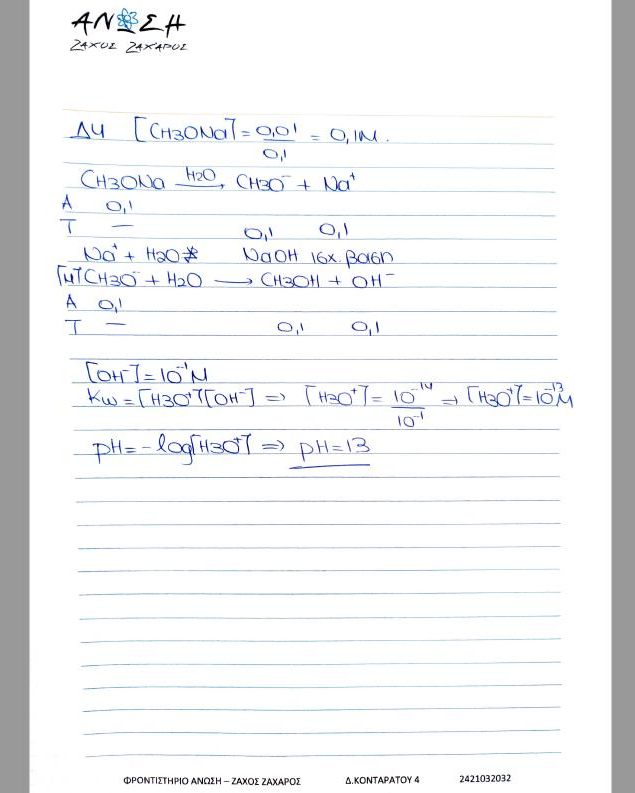 ΑΝΩΣΗ
ΖΑΧΟΣ ΖΑΧΑΡΟΣ
Δ4 [CH3ONa] = 0,01 / 0,1 = 0,1M.
CH3ONa —H2O→ CH3O⁻ + Na⁺
Α 0,1
Τ — 0,1 0,1
Na⁺ + H2O ↛ NaOH ισχ. βάση
CH3O⁻ + H2O → CH3OH + OH⁻
Α 0,1
Τ — 0,1 0,1
[OH⁻] = 10⁻¹M
Kw = [H3O⁺][OH⁻] ⇒ [H3O⁺] = 10⁻¹⁴ / 10⁻¹ ⇒ [H3O⁺] = 10⁻¹³M
pH = -log[H3O⁺] ⇒ pH = 13
ΦΡΟΝΤΙΣΤΗΡΙΟ ΑΝΩΣΗ – ΖΑΧΟΣ ΖΑΧΑΡΟΣ Δ.ΚΟΝΤΑΡΑΤΟΥ 4 2421032032